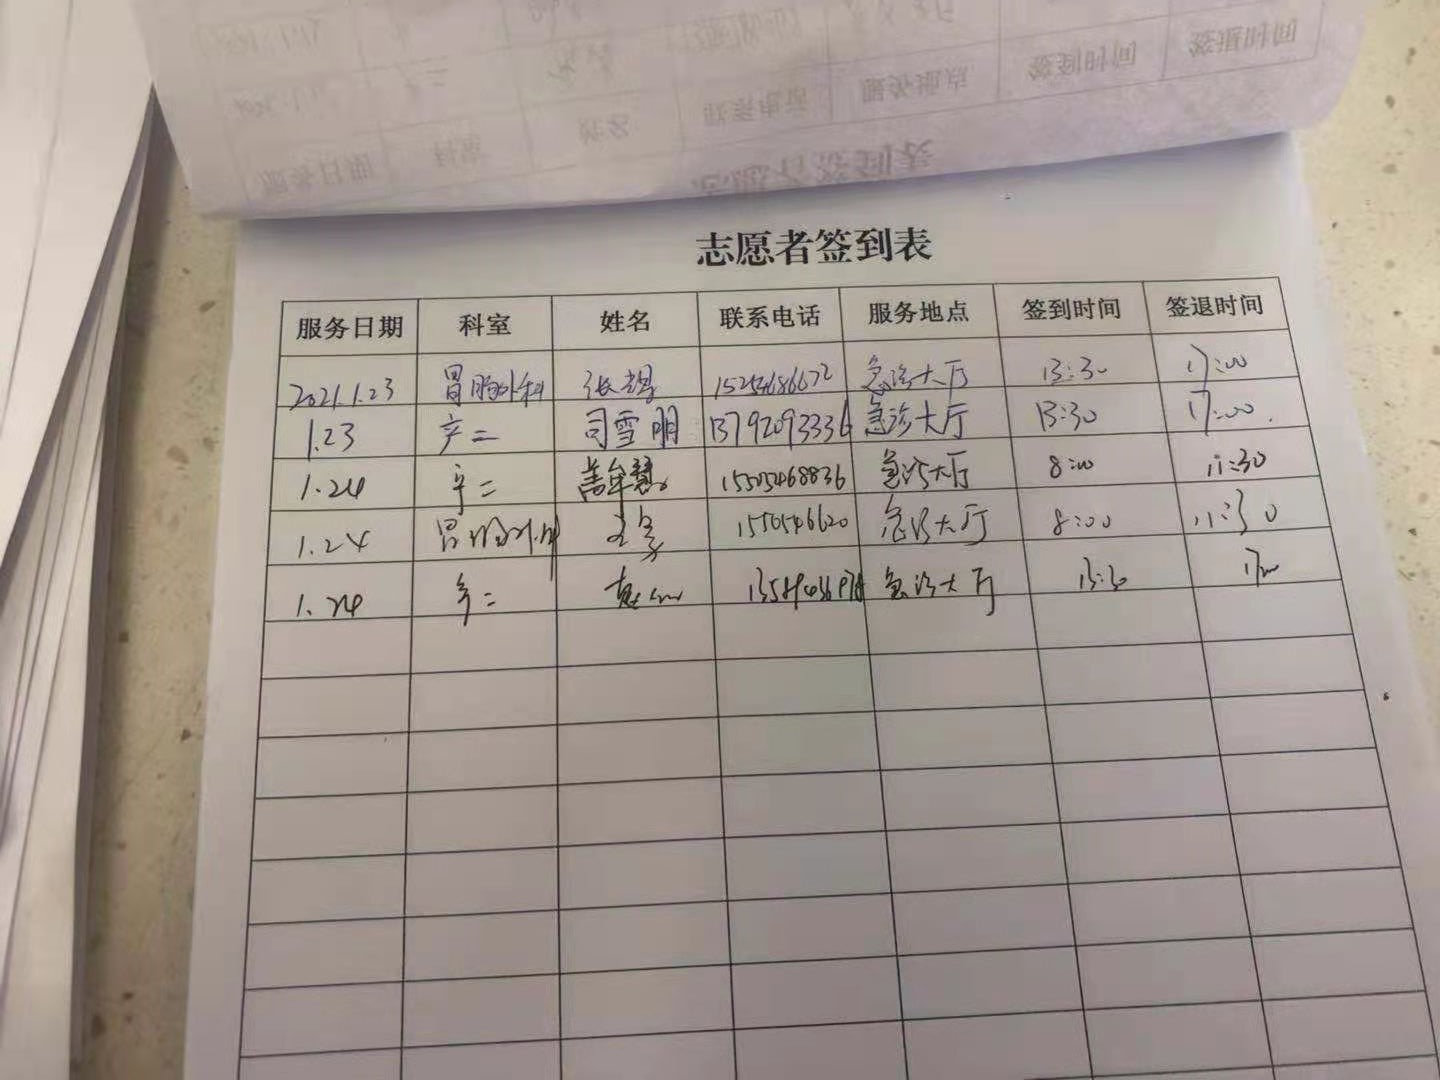 志愿者签到表
服务日期 科室 姓名 联系电话 服务地点 签到时间 签退时间
2021.1.23 胃肠外科 张 15254686672 急诊大厅 13:30 17:00
1.23 产二 司雪明 13792093336 急诊大厅 13:30 17:00.
1.24 产二 15505468836 急诊大厅 8:00 11:30
1.24 胃肠外科 急诊大厅 8:00 11:30
1.24 产二 急诊大厅 13:30 17:00